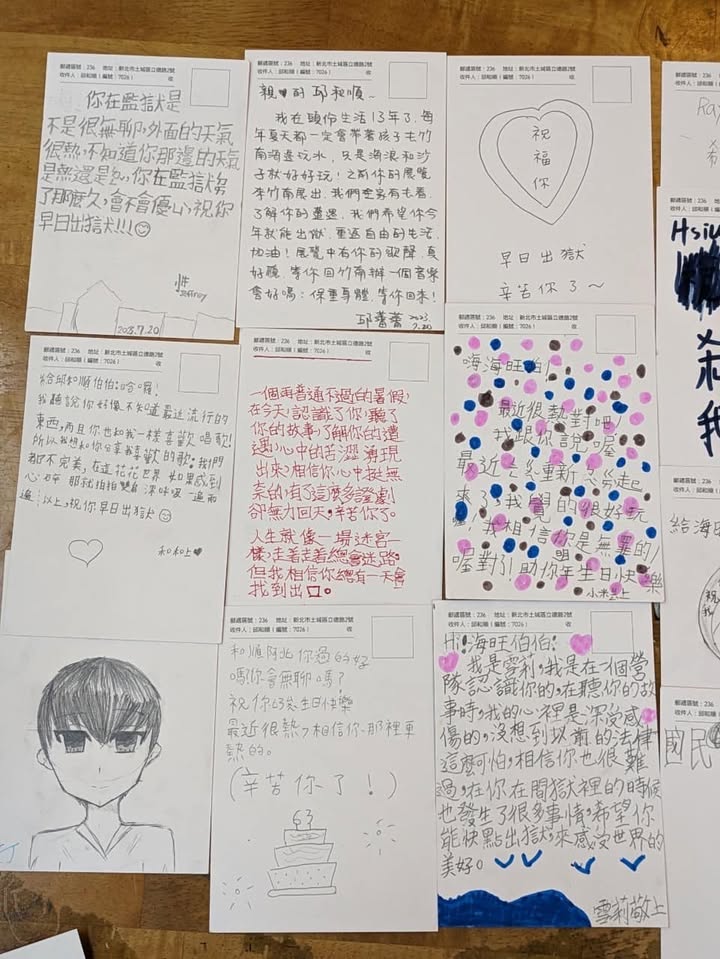 郵遞區號:236 地址:新北市土城區立德路2號
收件人:邱和順(編號:7026) 收
你在監獄是
不是很無聊,外面的天氣
很熱,不知道你那邊的天氣
是熱還是冷,你在監獄身
了那麼久,會不會傷心,祝你
早日出獄!!!
Jeffrey
2023.7.20
郵遞區號:236 地址:新北市土城區立德路2號
收件人:邱和順(編號:7026) 收
親❤的 邱和順~
我在頭份生活13年了,每
年夏天都一定會帶著孩子去竹
南海邊玩水,只是海浪和沙
子就好好玩!之前你的展覽
在竹南展出,我們全家有去看,
了解你的遭遇,我們希望你今
年就能出獄,重返自由的生活,
加油!展覽中有你的歌聲,真
好聽,等你回竹南辦一個音樂
會好嗎:保重身體,等你回來!
2023.
7.20
郵遞區號:236 地址:新北市土城區立德路2號
收件人:邱和順(編號:7026) 收
祝
福
你
早日出獄
辛苦你了~
郵遞區號:236 地址:新北市土城區立德路2號
收件人:邱和順(編號:7026) 收
給邱和順伯伯:哈囉!
我聽說你好像不知道最近流行的
東西,而且你也和我一樣喜歡唱歌!
所以我想和你分享我喜歡的歌:我們
都不完美,在這花花世界 如果感到
心碎 那就拍拍雙肩 深呼吸 一遍兩
遍⋯以上,祝你早日出獄
和和上❤
郵遞區號:236 地址:新北市土城區立德路2號
收件人:邱和順(編號:7026) 收
一個再普通不過的暑假,
在今天,認識了你,聽了
你的故事,了解你的遭
遇,心中的苦澀湧現
出來,相信你心中挺無
奈的,有了這麼多證劇
卻無力回天,辛苦你了。
人生就像一場迷宮一
樣,走著走著總會迷路,
但我相信你總有一天會
找到出口。
郵遞區號:236 地址:新北市土城區立德路2號
收件人:邱和順(編號:7026) 收
嗨海旺伯!
最近很熱對吧!
我跟你說喔
最近重新
來了,我覺的很好玩
!我相信你是無罪的!
喔對了!助你明年生日快樂
小米上
郵遞區號:236 地址:新北市土城區立德路2號
收件人:邱和順(編號:7026) 收
和順阿北你過的好
嗎?你會無聊嗎?
祝你63歲生日快樂
最近很熱,相信你那裡更
熱的。
(辛苦你了!)
63
郵遞區號:236 地址:新北市土城區立德路2號
收件人:邱和順(編號:7026) 收
Hi!海旺伯伯!
我是雪莉,我是在一個營
隊認識你的,在聽你的故
事時,我的心裡是深受感
傷的,沒想到以前的法律
這麼可怕,相信你也很難
過,在你在間獄裡的時候
也發生了很多事情,希望你
能快點出獄,來感受世界的
美好。
雪莉敬上
郵遞區號:236
收件人:邱和順(
Hsiu
我
給海
國民